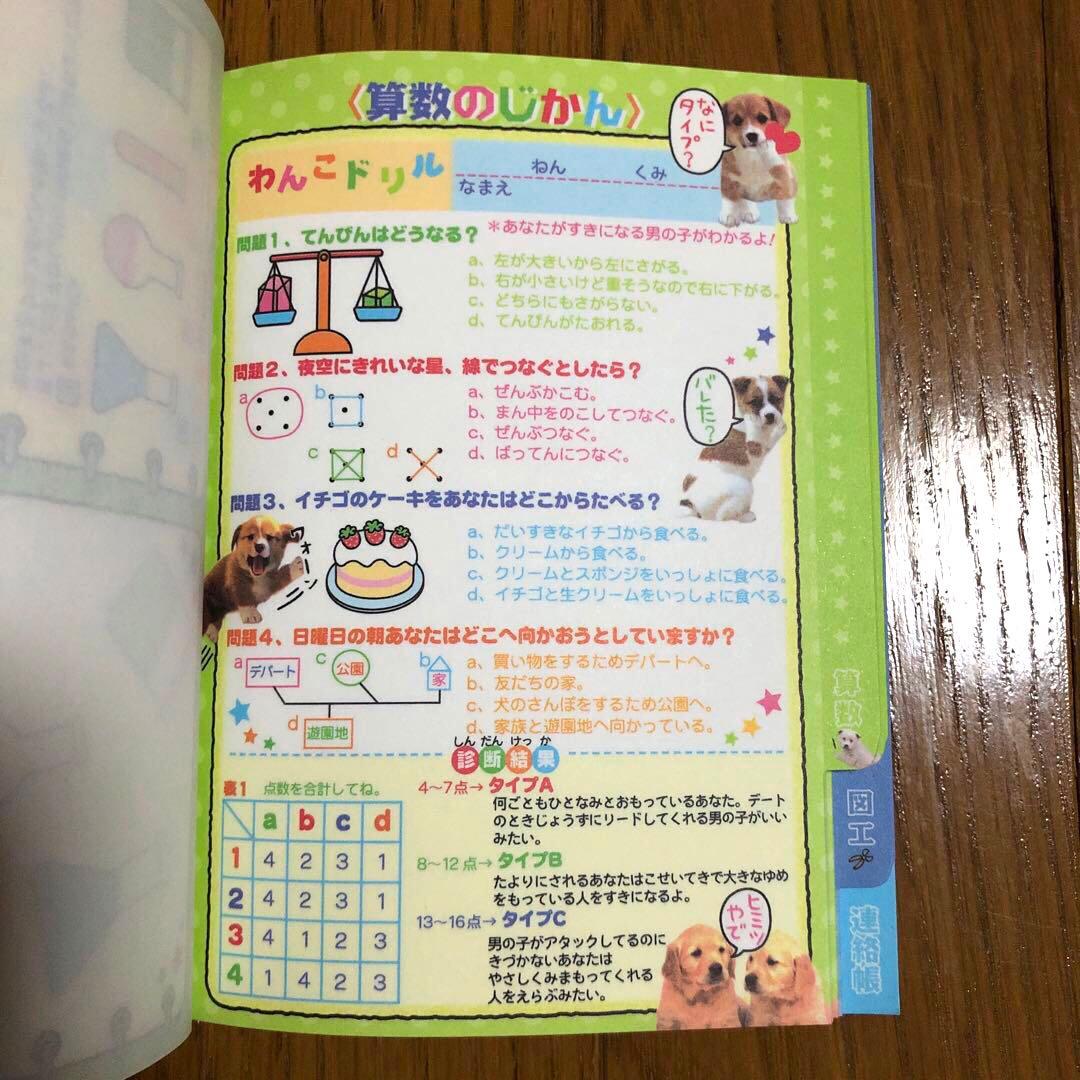 〈算数のじかん〉
なに
タイプ?
わんこドリル
ねん くみ
なまえ
問題1、てんびんはどうなる?
＊あなたがすきになる男の子がわかるよ!
a、左が大きいから左にさがる。
b、右が小さいけど重そうなので右に下がる。
c、どちらにもさがらない。
d、てんびんがたおれる。
問題2、夜空にきれいな星、線でつなぐとしたら?
a b
c d
a、ぜんぶかこむ。
b、まん中をのこしてつなぐ。
c、ぜんぶつなぐ。
d、ばってんにつなぐ。
バレた?
問題3、イチゴのケーキをあなたはどこからたべる?
ウォーン
a、だいすきなイチゴから食べる。
b、クリームから食べる。
c、クリームとスポンジをいっしょに食べる。
d、イチゴと生クリームをいっしょに食べる。
問題4、日曜日の朝あなたはどこへ向かおうとしていますか?
a デパート c 公園 b 家
d 遊園地
a、買い物をするためデパートへ。
b、友だちの家。
c、犬のさんぽをするため公園へ。
d、家族と遊園地へ向かっている。
しんだんけっか
診断結果
表1 点数を合計してね。
a b c d
1 4 2 3 1
2 4 2 3 1
3 4 1 2 3
4 1 4 2 3
4〜7点→タイプA
何ごともひとなみとおもっているあなた。デート
のときじょうずにリードしてくれる男の子がいい
みたい。
8〜12点→タイプB
たよりにされるあなたはこせいてきで大きなゆめ
をもっている人をすきになるよ。
13〜16点→タイプC
男の子がアタックしてるのに
きづかないあなたは
やさしくみまもってくれる
人をえらぶみたい。
ヒミツ
やで
算数
図工
連絡帳